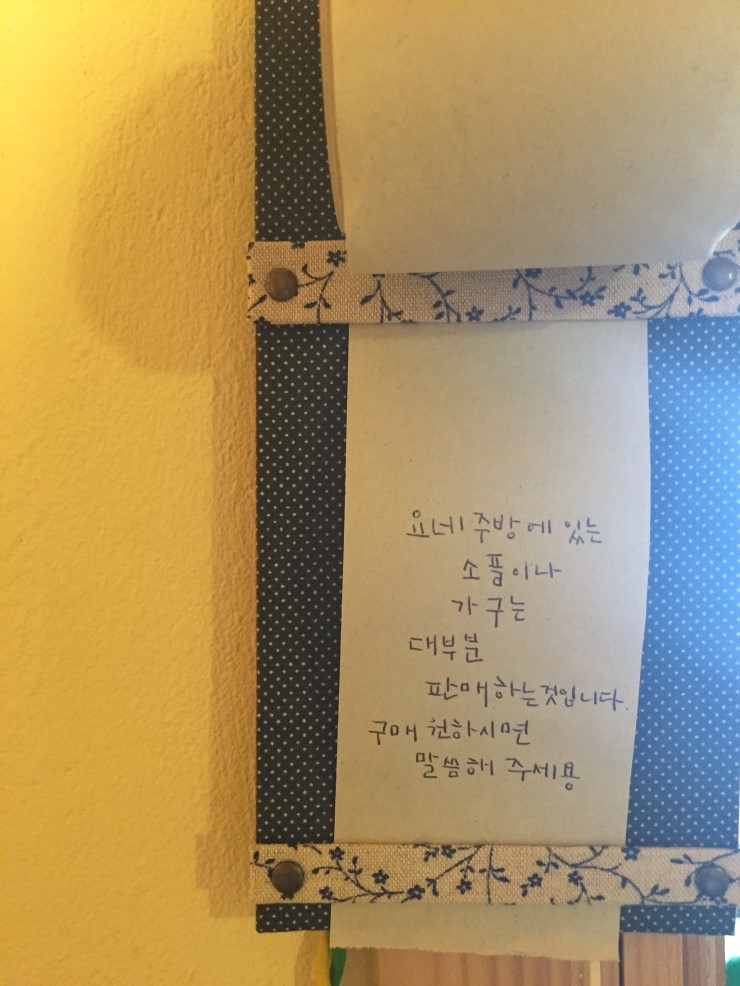 요네주방에 있는
소품이나
가구는
대부분
판매하는것입니다.
구매 원하시면
말씀해 주세용